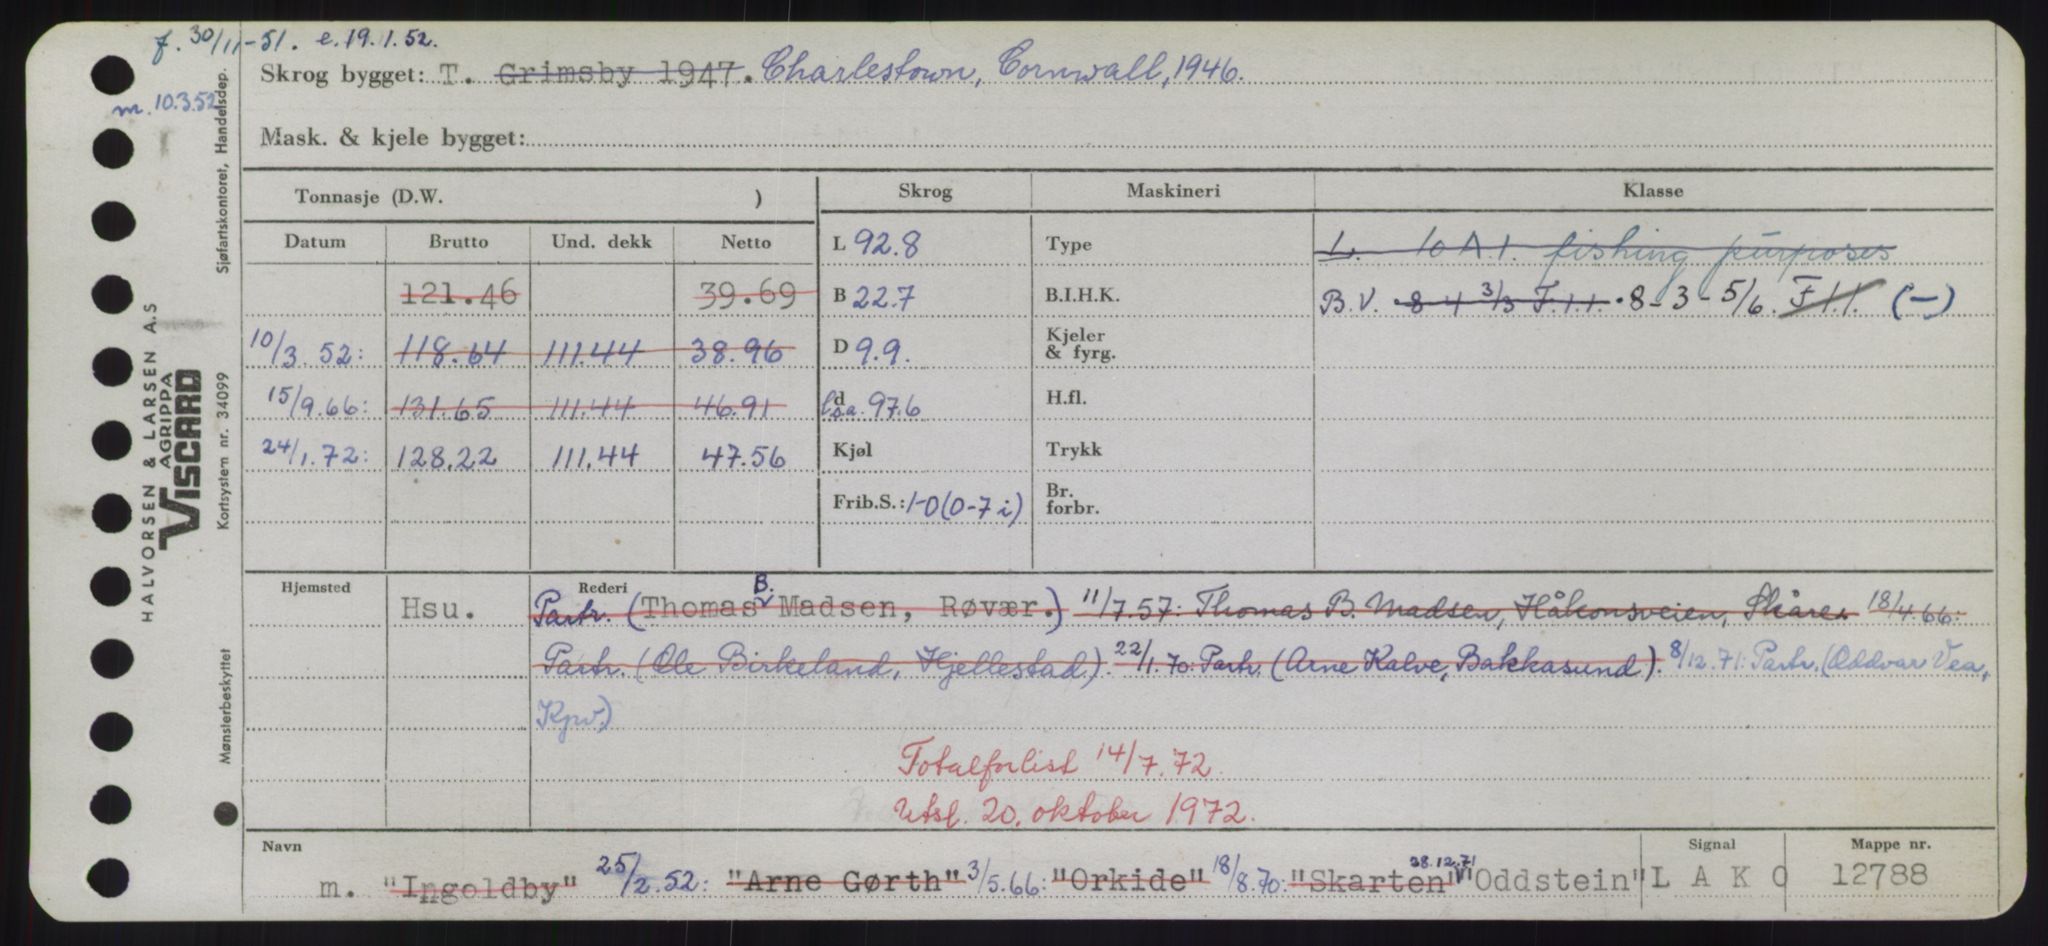 f. 30/11-51. e. 19.1.52.
m. 10.3.52
Skrog bygget: T. Grimsby 1947. Charlestown, Cornwall, 1946.
Mask. & kjele bygget:
Tonnasje (D.W. )
Datum Brutto Und. dekk Netto
121.46 39.69
10/3.52: 118.64 111.44 38.96
15/9.66: 131.65 111.44 46.91
24/1.72: 128.22 111.44 47.56
Skrog Maskineri Klasse
L 92.8 Type L. 10 A.1. fishing purposes
B 22.7 B.I.H.K. B.V. 8-4 3/3 F.1.1. 8-3-5/6. F 1.1. (-)
D 9.9. Kjeler & fyrg.
d l.s.a. 97.6 H.fl.
Kjøl Trykk
Frib.S.: 1-0 (0-7 i) Br. forbr.
Hjemsted Rederi
Hsu. Partr. (Thomas B. Madsen, Røvær.) 11/7.57: Thomas B. Madsen, Håkonsveien, Skåre. 18/4.66:
Partr. (Ole Birkeland, Hjellestad). 22/1.70: Partr. (Arne Kalve, Bakkasund). 8/12.71: Partr. (Oddvar Vea,
Kpv.)
Totalforlist 14/7.72.
Utsl. 20. oktober 1972.
Navn Signal Mappe nr.
m. "Ingoldby" 25/2.52: "Arne Gørth" 3/5.66: "Orkide" 18/8.70: "Skarten" 28.12.71 "Oddstein" L A K O 12788
Sjøfartskontoret, Handelsdep.
HALVORSEN & LARSEN A.S
AGRIPPA
VISCARD
Kortsystem nr. 34099
Mønsterbeskyttet